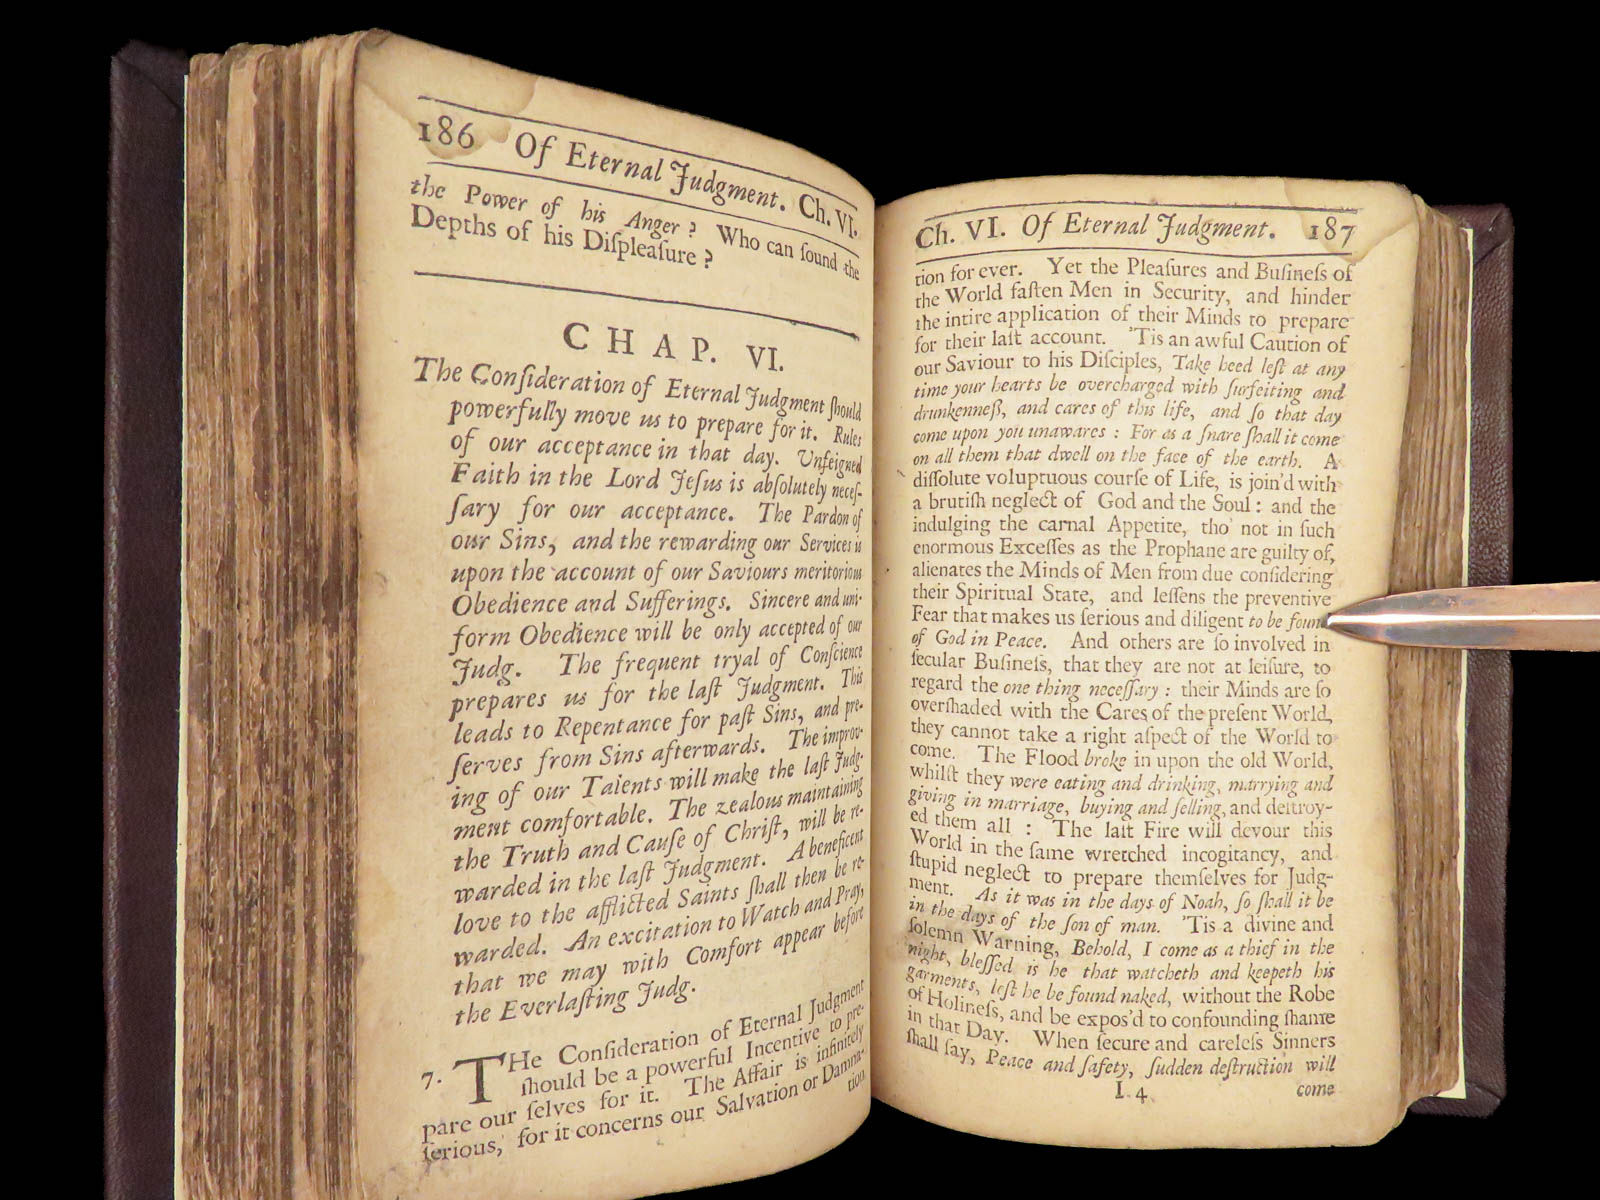 186 Of Eternal Judgment. Ch. VI.
the Power of his Anger? Who can ſound the
Depths of his Diſpleaſure?
CHAP. VI.
The Conſideration of Eternal Judgment ſhould
powerfully move us to prepare for it. Rules
of our acceptance in that day. Unfeigned
Faith in the Lord Jeſus is abſolutely neceſ-
ſary for our acceptance. The Pardon of
our Sins, and the rewarding our Services is
upon the account of our Saviours meritorious
Obedience and Sufferings. Sincere and uni-
form Obedience will be only accepted of our
Judg. The frequent tryal of Conſcience
prepares us for the laſt Judgment. This
leads to Repentance for paſt Sins, and pre-
ſerves from Sins afterwards. The improv-
ing of our Talents will make the laſt Judg-
ment comfortable. The zealous maintaining
the Truth and Cauſe of Chriſt, will be re-
warded in the laſt Judgment. A beneficent
love to the afflicted Saints ſhall then be re-
warded. An excitation to Watch and Pray,
that we may with Comfort appear before
the Everlaſting Judg.
7. THe Conſideration of Eternal Judgment
ſhould be a powerful Incentive to pre-
pare our ſelves for it. The Affair is infinitely
ſerious, for it concerns our Salvation or Damna-
tion
Ch. VI. Of Eternal Judgment. 187
tion for ever. Yet the Pleaſures and Buſineſs of
the World faſten Men in Security, and hinder
the intire application of their Minds to prepare
for their laſt account. 'Tis an awful Caution of
our Saviour to his Diſciples, Take heed leſt at any
time your hearts be overcharged with ſurfeiting and
drunkenneß, and cares of this life, and ſo that day
come upon you unawares : For as a ſnare ſhall it come
on all them that dwell on the face of the earth. A
diſſolute voluptuous courſe of Life, is join'd with
a brutiſh neglect of God and the Soul : and the
indulging the carnal Appetite, tho' not in ſuch
enormous Exceſſes as the Prophane are guilty of,
alienates the Minds of Men from due conſidering
their Spiritual State, and leſſens the preventive
Fear that makes us ſerious and diligent to be found
of God in Peace. And others are ſo involved in
ſecular Buſineſs, that they are not at leiſure, to
regard the one thing neceſſary : their Minds are ſo
overſhaded with the Cares of the preſent World,
they cannot take a right aſpect of the World to
come. The Flood broke in upon the old World,
whilſt they were eating and drinking, marrying and
giving in marriage, buying and ſelling, and deſtroy-
ed them all : The laſt Fire will devour this
World in the ſame wretched incogitancy, and
ſtupid neglect to prepare themſelves for Judg-
ment. As it was in the days of Noah, ſo ſhall it be
in the days of the ſon of man. 'Tis a divine and
ſolemn Warning, Behold, I come as a thief in the
night, bleſſed is he that watcheth and keepeth his
garments, leſt he be found naked, without the Robe
of Holineſs, and be expos'd to confounding ſhame
in that Day. When ſecure and careleſs Sinners
ſhall ſay, Peace and ſafety, ſudden deſtruction will
I 4 come